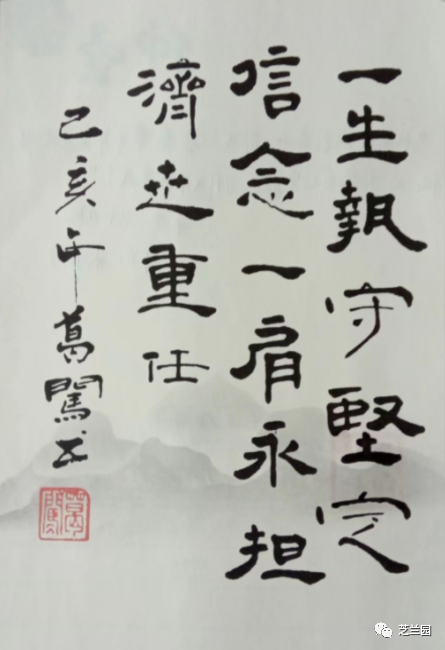 一生執守堅定
信念一肩永担
濟世重任
己亥年葛闖书
葛闖
芝兰园